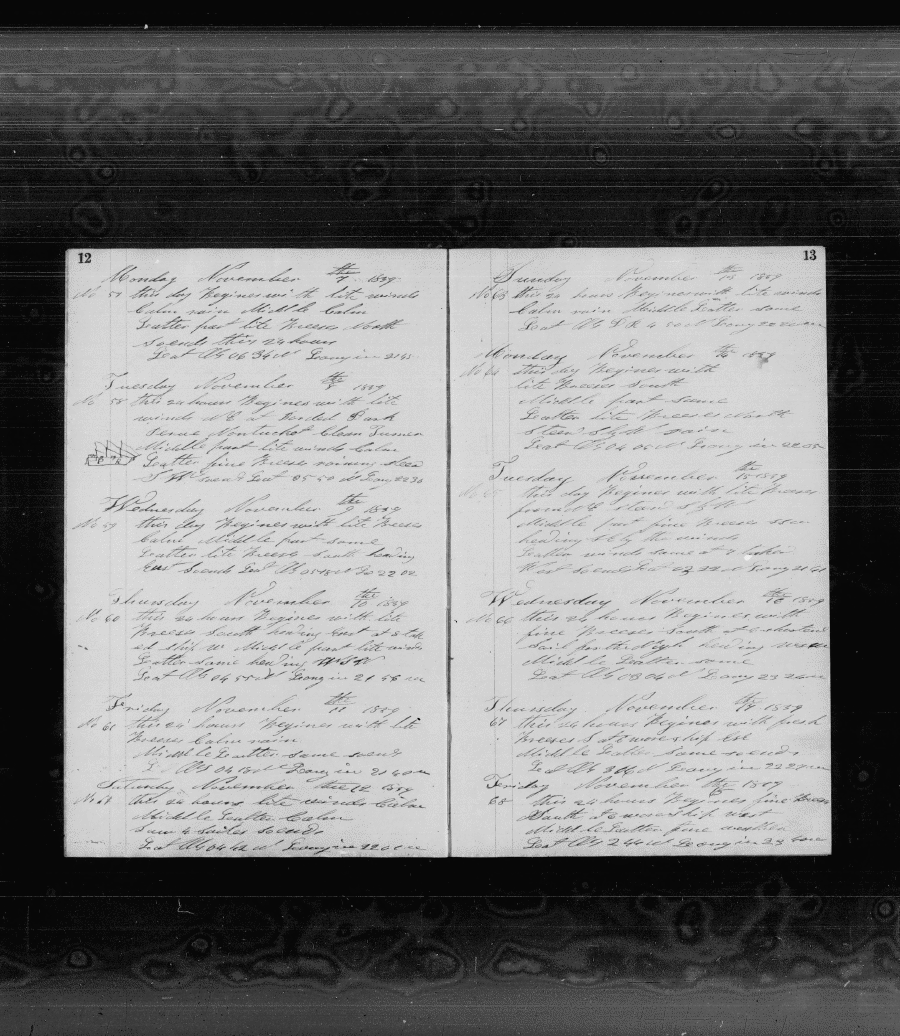 12
Monday November the 7 1859
No 57 this day Begines with lite winds
Calm rain Middle Calm
Latter part lite Breeses North
so ends this 24 hours
Leat By 06 36 N Long in 21 45
Tuesday November the 8 1859
No 58 this 24 hours Begines with lite
winds N E at
Middle part lite winds Calm
Latter fine Breeses
S W so end Leat 05-50 N Long 22 36
Wednesday November the 9 1859
No 59 this day Begines with lite Breeses
Calm Middle part same
Latter lite Breese South heading
East so ends Leat By
Thursday November the 10 1859
No 60 this 24 hours Begines with lite
Breeses South heading East at 8 tak
ed ship W Middle part lite winds
Latter same heading W S W
Leat By 04 55 N Long in 21 56
Friday November the 11 1859
No 61 this 24 hours Begines with lite
Breeses Calm rain
Middle Latter same so ends
By 04 Long in 21
Saturday November the 12 1859
this 24 hours lite winds Calm
Middle Latter Calm
Saw 4 sailes so ends
Leat By 04 N Long in
13
Sunday November the 1859
No 63 this 24 hours Begines with lite winds
Calm rain Middle Latter same
Leat By D R 4 50 N Long 22
Monday November the 14 1859
No 64 this day Begines with
lite Breeses South
Middle part same
Latter lite Breeses North
S by W rain
Leat By 04 00 N Long in 22
Tuesday November the 15 1859
this day Begines with lite Breeses
from S by W
Middle part fine Breeses
heading by the winds
Latter winds same at
West so ends Leat N Long
Wednesday November the 16 1859
No 66 this 24 hours Begines with
fine Breeses South at 6 shortend
sail for the Nigh heading
Middle Latter same
Leat By 03 04 N Long 23 24
Thursday November the 17 1859
67 this 24 hours Begines with fresh
Breeses S at ware ship
Middle Latter same so ends
Leat By N Long in 22
Friday November the 18 1859
68 this 24 hours Begines fine Breese
South at 6 ware ship west
Middle Latter fine weather
Leat By 2 44 N Long in 23